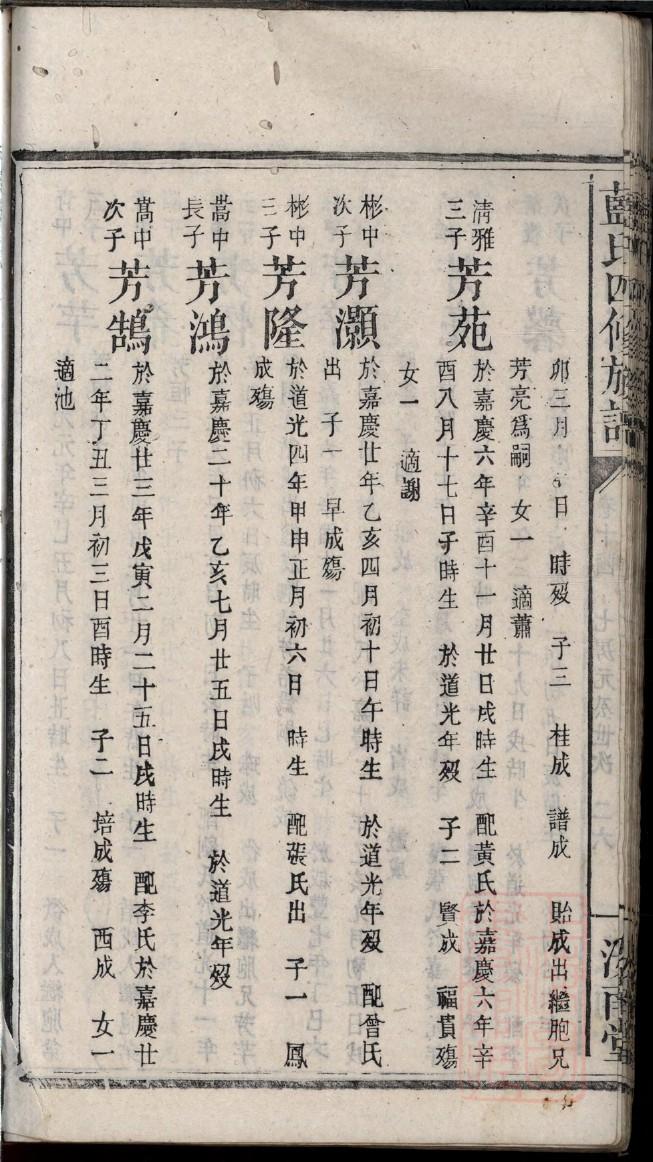 藍氏四修族譜
卯三月 日 時歿 子三 桂成 譜成 貽成出繼胞兄
芳亮爲嗣 女一 適蕭
清雅三子 芳苑 於嘉慶六年辛酉十一月廿日戌時生 配黃氏於嘉慶六年辛
酉八月十七日子時生 於道光年歿 子二 賢成 福貴殤
女一 適謝
彬中次子 芳灝 於嘉慶廿年乙亥四月初十日午時生 於道光年歿 配曾氏
出 子一 早成殤
彬中三子 芳隆 於道光四年甲申正月初六日 時生 配張氏出 子一 鳳
成殤
嵩中長子 芳鴻 於嘉慶二十年乙亥七月廿五日戌時生 於道光年歿
嵩中次子 芳鵠 於嘉慶廿三年戊寅二月二十五日戌時生 配李氏於嘉慶廿
二年丁丑三月初三日酉時生 子二 培成殤 西成 女一
適池